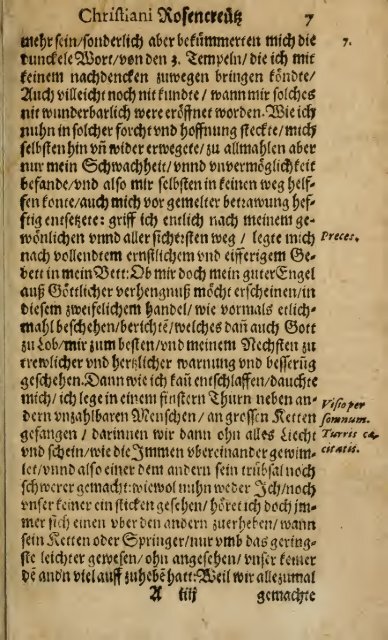 Chriſtiani Roſencreütz 7
mehr ſein/ſonderlich aber bekümmerten mich die 7.
tunckele Wort/von den 3. Tempeln/die ich mit
keinem nachdencken zuwegen bringen köndte/
Auch villeicht noch nit kundte/wann mir ſolches
nit wunderbarlich were eröffnet worden. Wie ich
nuhn in ſolcher forcht vnd hoffnung ſteckte/mich
ſelbſten hin vñ wider erwegete/zu allmahlen aber
nur mein Schwachheit/vnnd vnvermöglichkeit
befande/vnd alſo mir ſelbſten in keinen weg helf-
fen konte/auch mich vor gemelter betrawung hef-
ftig entſetzte: griff ich entlich nach meinem ge-
wönlichen vnnd aller ſicherſten weg/legte mich Preces.
nach vollendtem ernſtlichem vnd eifferigem Ge-
bett in mein Bett: Ob mir doch mein guter Engel
auß Göttlicher verhengnuß möcht erſcheinen/in
dieſem zweifelichem handel/wie vormals etlich-
mahl beſchehen/berichtē/welches dañ auch Gott
zu Lob/mir zum beſten/vnd meinem Nechſten zu
trewlicher vnd hertzlicher warnung vnd beſſerūg
geſchehen. Dann wie ich kaū entſchlaffen/dauchte
mich/ich lege in einem finſtern Thurn neben an- Viſio per
dern vnzahlbaren Menſchen/an groſſen Ketten ſomnum.
gefangen/darinnen wir dann ohn alles Liecht Turris cæ-
vnd ſchein/wie die Immen vber einander gewim- citatis.
let/vnnd alſo einer dem andern ſein trübſal noch
ſchwerer gemacht: wiewol nuhn weder Ich/noch
vnſer keiner ein ſticken geſehen/höret ich doch im-
mer ſich einen vber den andern zuerheben/wann
ſein Ketten oder Springer/nur vmb das gering-
ſte leichter geweſen/ohn angeſehen/vnſer keiner
dē andn viel auff zuhebē hatt: Weil wir allezumal
A iiij gemachte